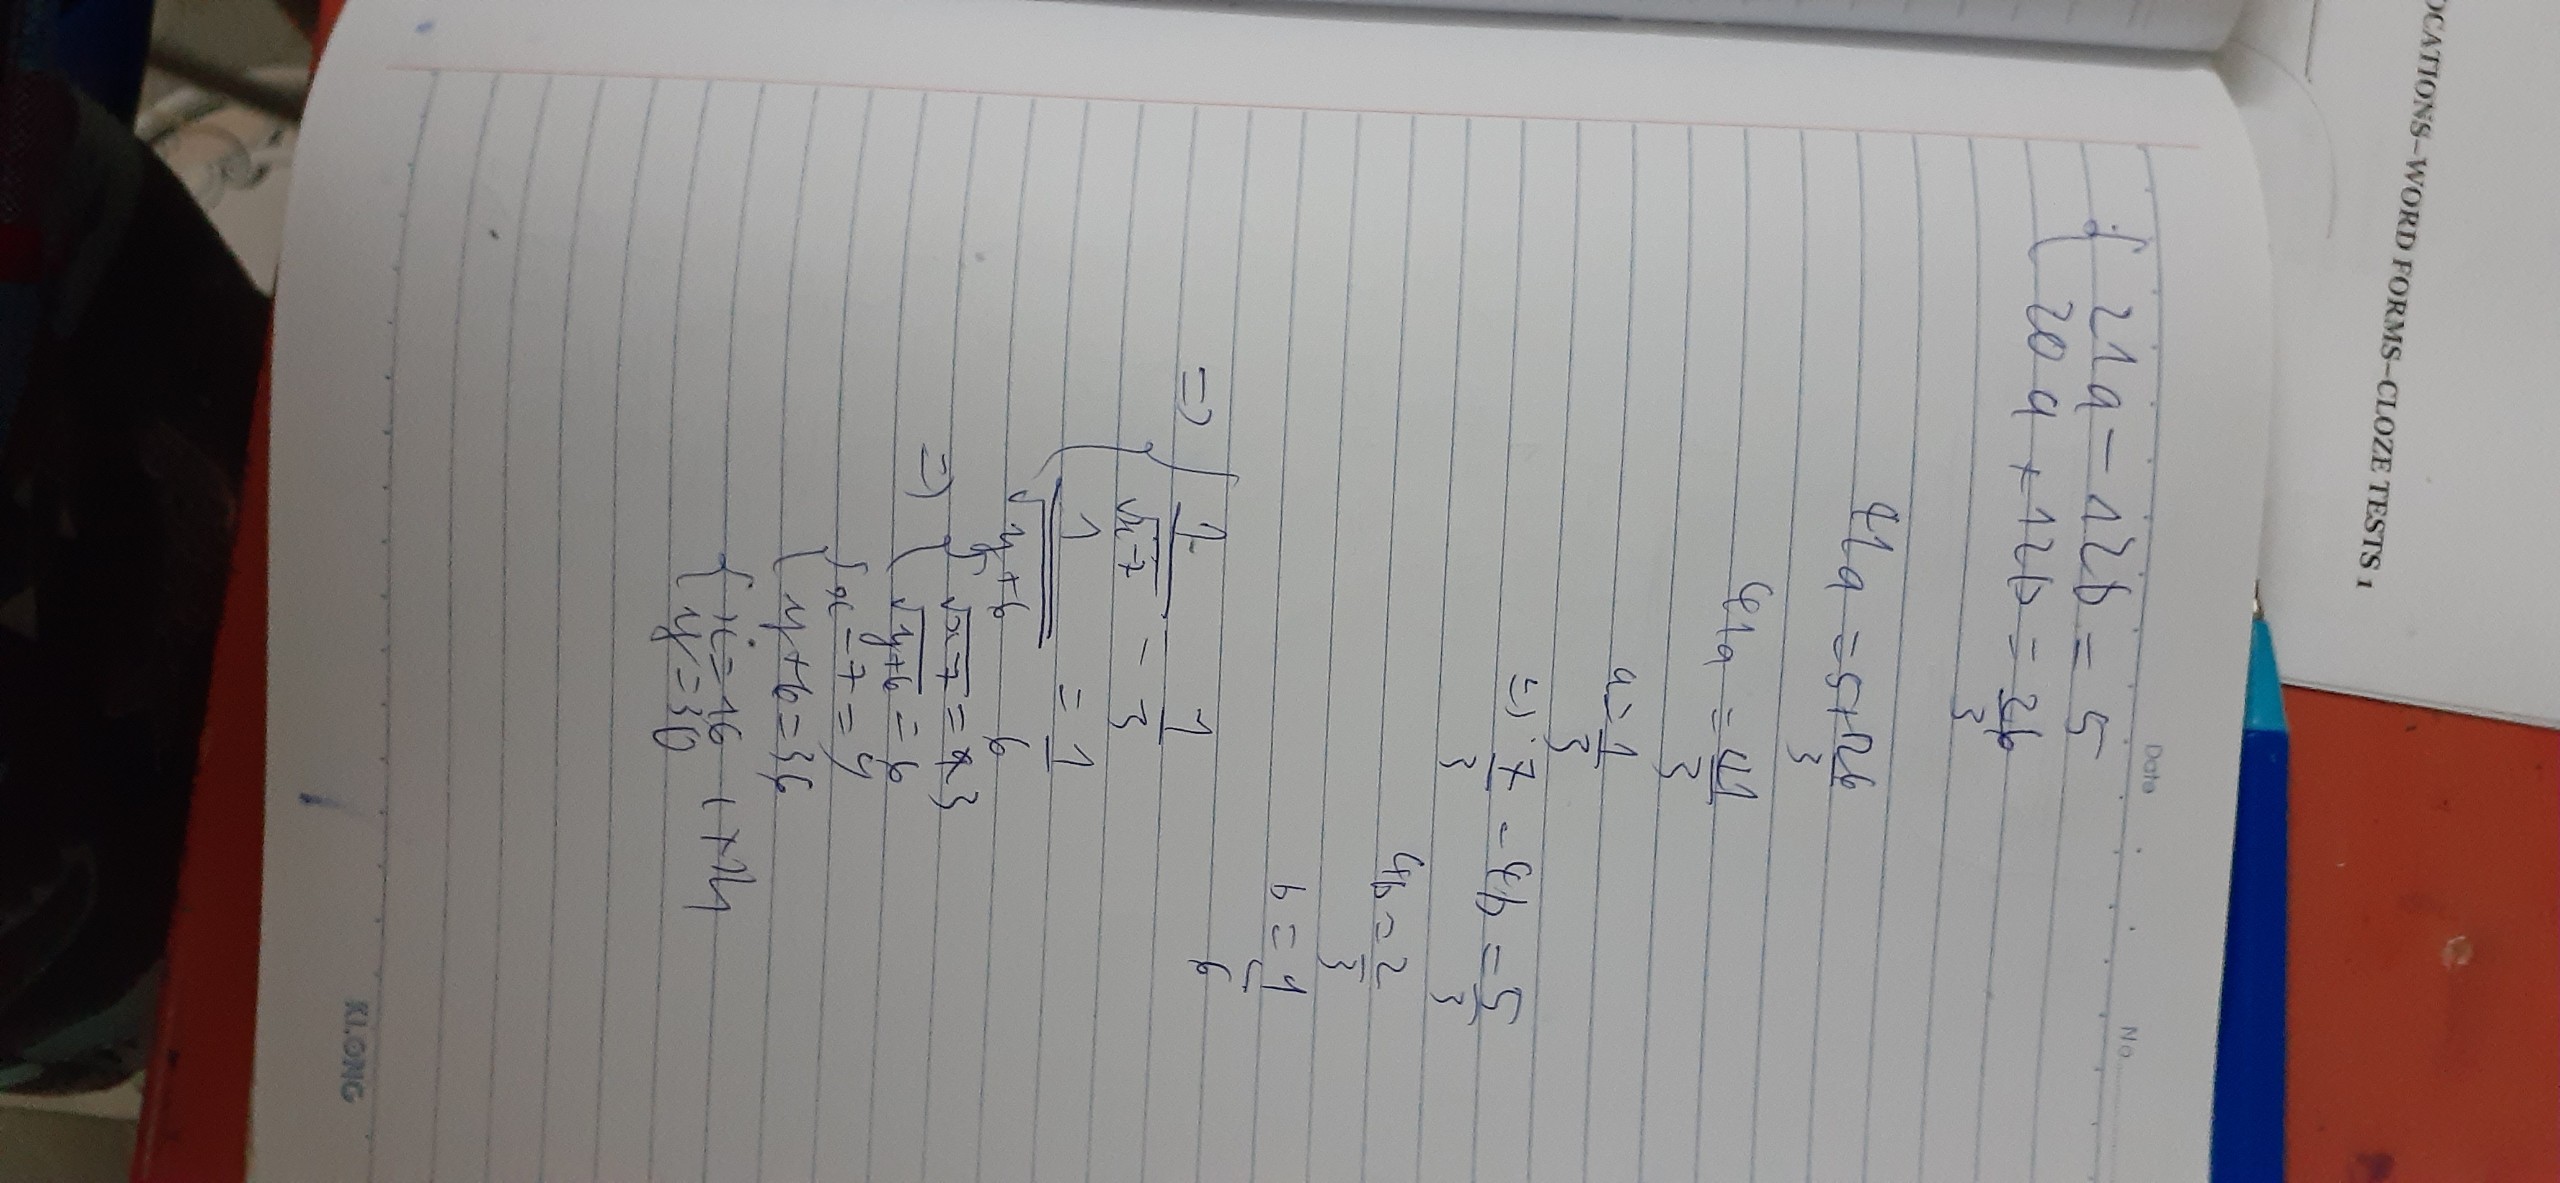 OCATIONS–WORD FORMS–CLOZE TESTS 1
Date No.
{ 21a - 12b = 5
{ 20a + 12b = 26/3
41a = 5 + 26/3
41a = 41/3
a = 1/3
=> 7/3 - 4b = 5/3
4b = 2/3
b = 1/6
=> { 1/√x-7 = 1/3
{ 1/√y+6 = 1/6
=> { √x-7 = 3
{ √y+6 = 6
{ x-7 = 9
{ y+6 = 36
{ x = 16
{ y = 30
KLONG